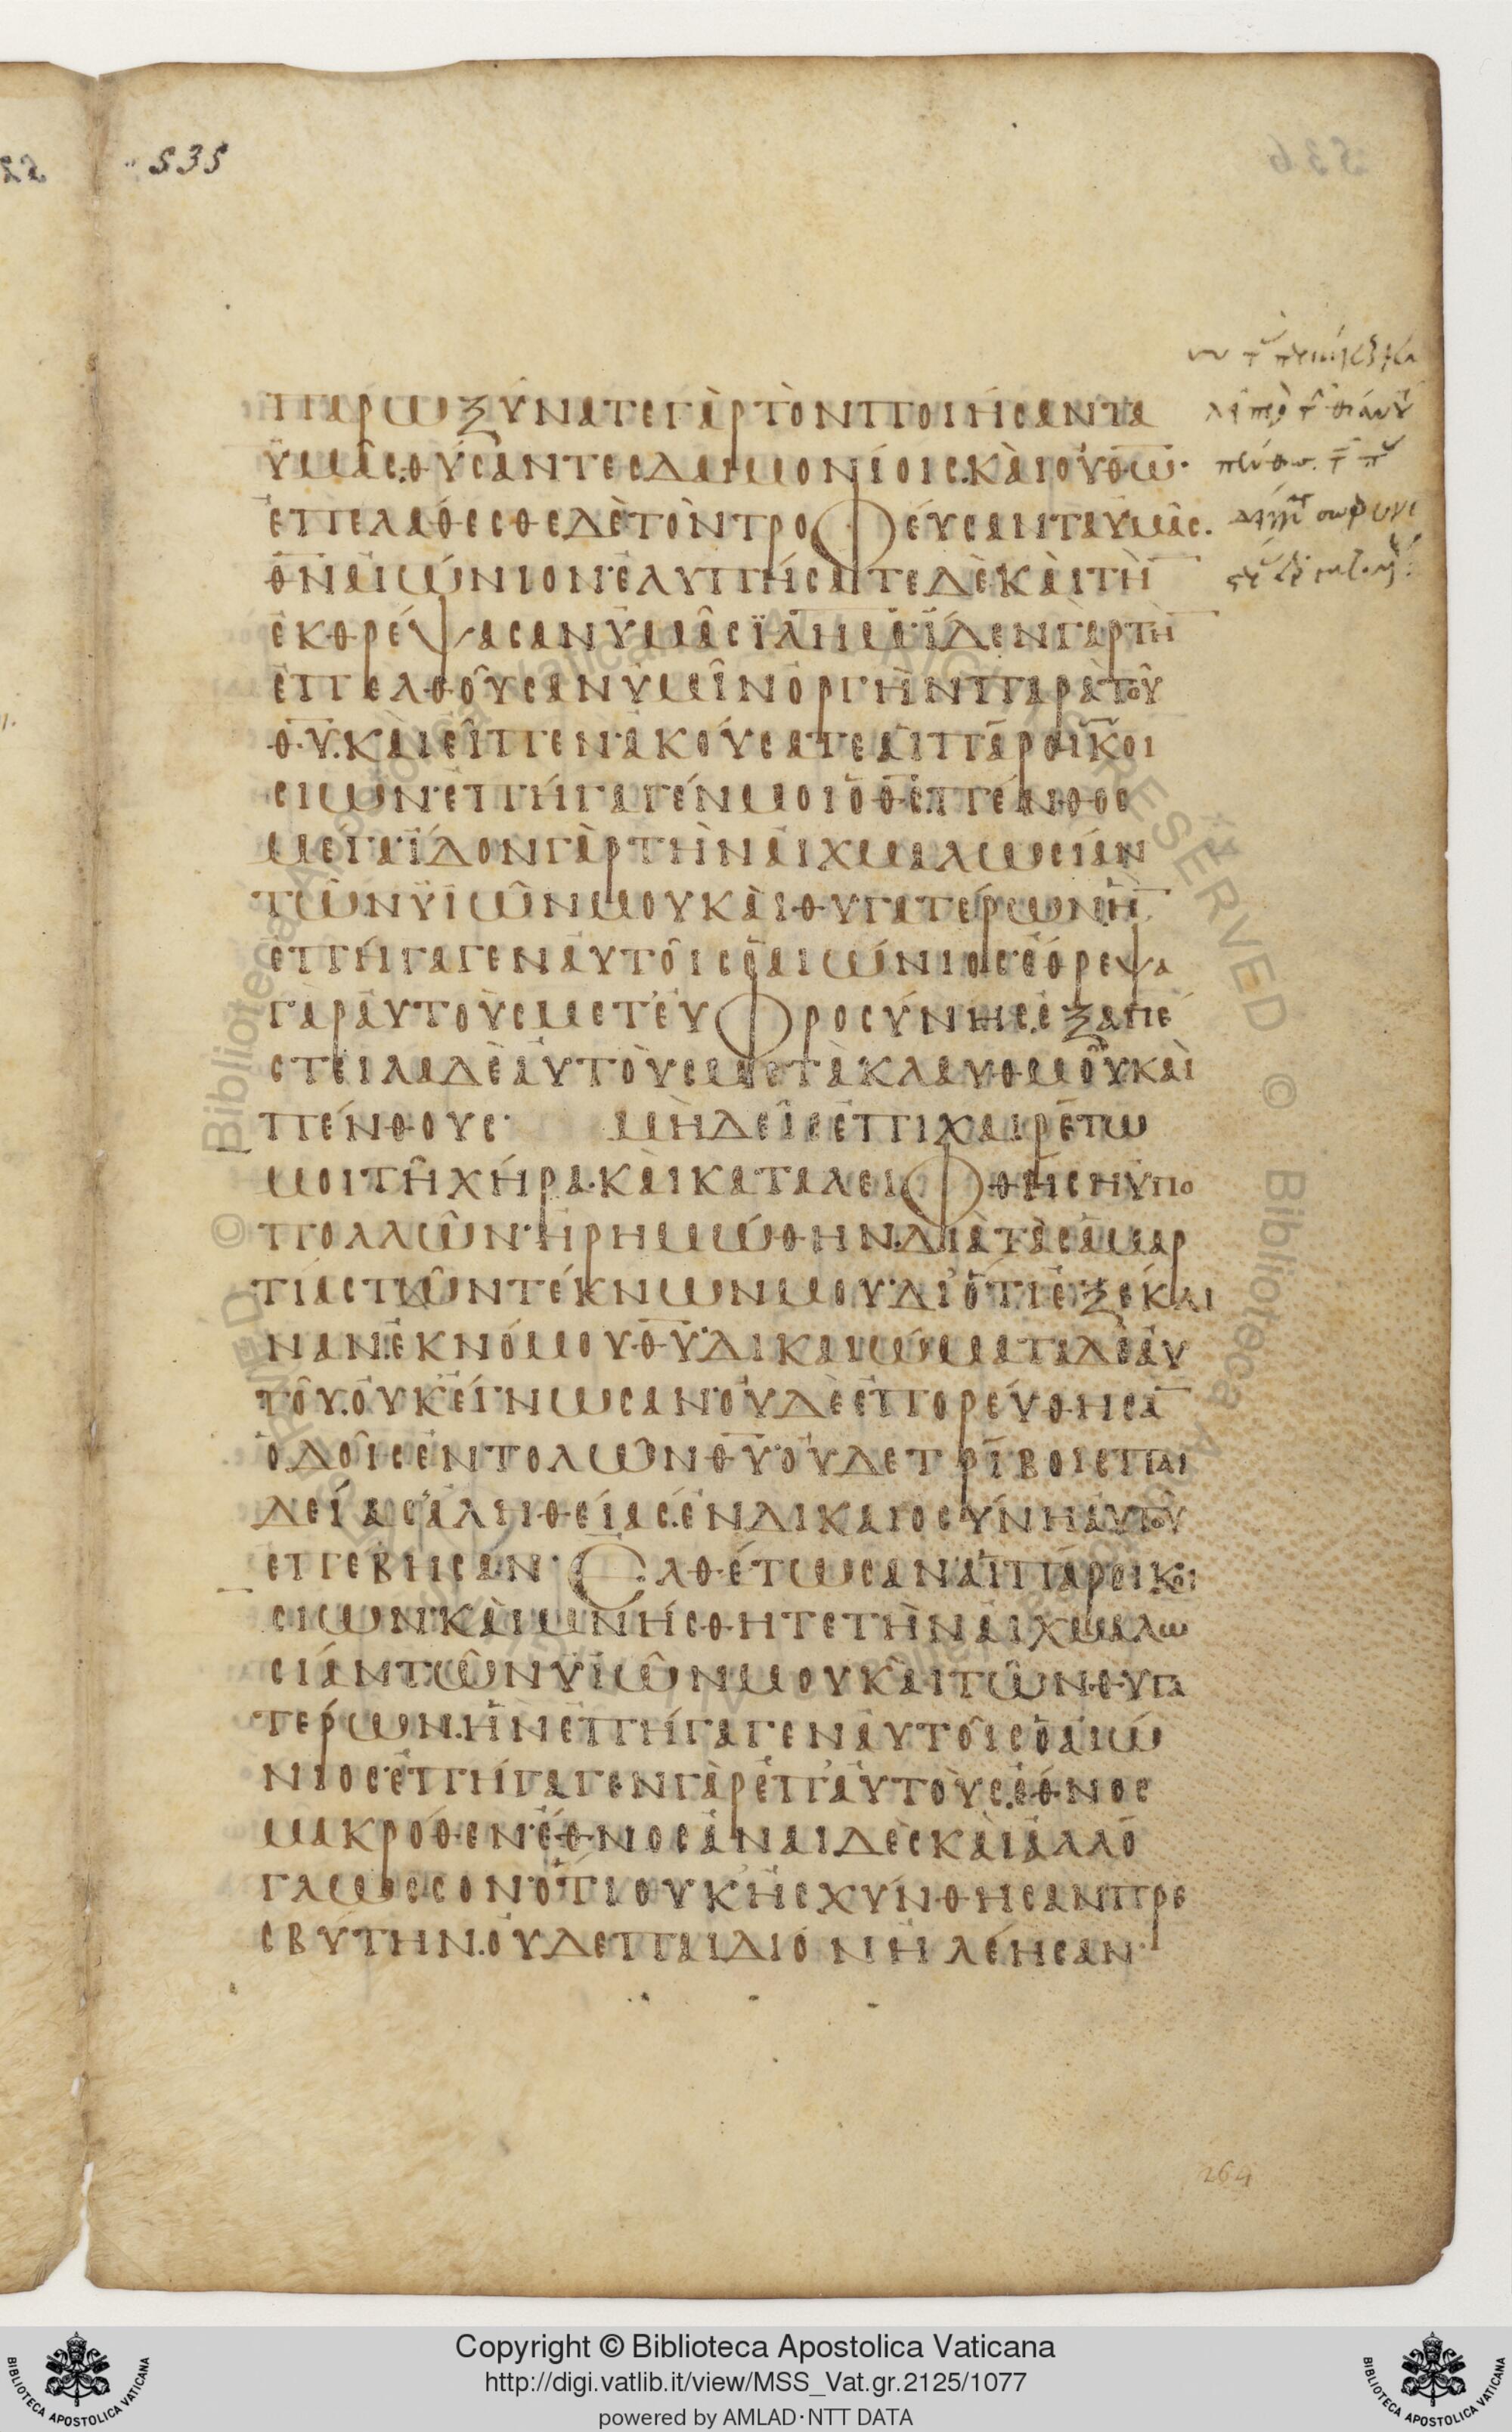 535
παρωξύνατε γὰρ τὸν ποιήσαντα
ὑμᾶς· θύσαντες δαιμονίοις· καὶ οὐ θ̅ω̅·
ἐπελάθεσθε δὲ τὸν τροφεύσαντα ὑμᾶς·
θ̅ν̅ αἰώνιον· ἐλυπήσατε δὲ καὶ τὴ̅
ἐκθρέψασαν ὑμᾶς ι̅λ̅η̅μ̅· ἴδεν γὰρ τὴ̅
ἐπελθοῦσαν ὑμῖν ὀργὴν παρὰ τοῦ
θ̅υ̅· καὶ εἶπεν· ἀκούσατε αἱ πάροικοι
σιών· ἐπήγαγέν μοι ὁ θ̅ς̅ πένθος
μέγα· ἴδον γὰρ τὴν αἰχμαλωσίαν
τῶν υἱῶν μου καὶ θυγατέρων· ἣ̅
ἐπήγαγεν αὐτοῖς ὁ αἰώνιος· ἔθρεψα
γὰρ αὐτοὺς μετ' εὐφροσύνης· ἐξαπέ
στειλα δὲ αὐτοὺς μετὰ κλαυθμοῦ καὶ
πένθους· μὴδεὶς ἐπιχαιρέτω
μοι τῇ χήρα· καὶ καταλειφθήσῃ ὑπὸ
πολλῶν· ἠρημώθην διὰ τὰς ἁμαρ
τίας τῶν τέκνων μου· διότι ἐξέκλι
ναν ἐκ νόμου θ̅υ̅· δικαιώματα δὲ αὐ
τοῦ οὐκ ἔγνωσαν· οὐδὲ ἐπορεύθησα̅
ὁδοῖς ἐντολῶν θ̅υ̅· οὐδὲ τρίβοις παι
δείας ἀληθείας· ἐν δικαιοσύνη αὐτοῦ
ἐπέβησαν· Ἐλθέτωσαν αἱ πάροικοι
σιών· καὶ μνήσθητε τὴν αἰχμαλω
σίαν τῶν υἱῶν μου καὶ τῶν θυγα
τέρων· ἣν ἐπήγαγεν αὐτοῖς ὁ αἰώ
νιος· ἐπήγαγεν γὰρ ἐπ' αὐτοὺς ἔθνος
μακρόθεν· ἔθνος ἀναιδὲς καὶ ἀλλό
γλωσσον· ὅτι οὐκ ᾐσχύνθησαν πρε
σβύτην· οὐδὲ παιδίον ἠλέησαν·
264
Copyright © Biblioteca Apostolica Vaticana
http://digi.vatlib.it/view/MSS_Vat.gr.2125/1077
powered by AMLAD·NTT DATA
BIBLIOTECA APOSTOLICA VATICANA
BIBLIOTECA APOSTOLICA VATICANA